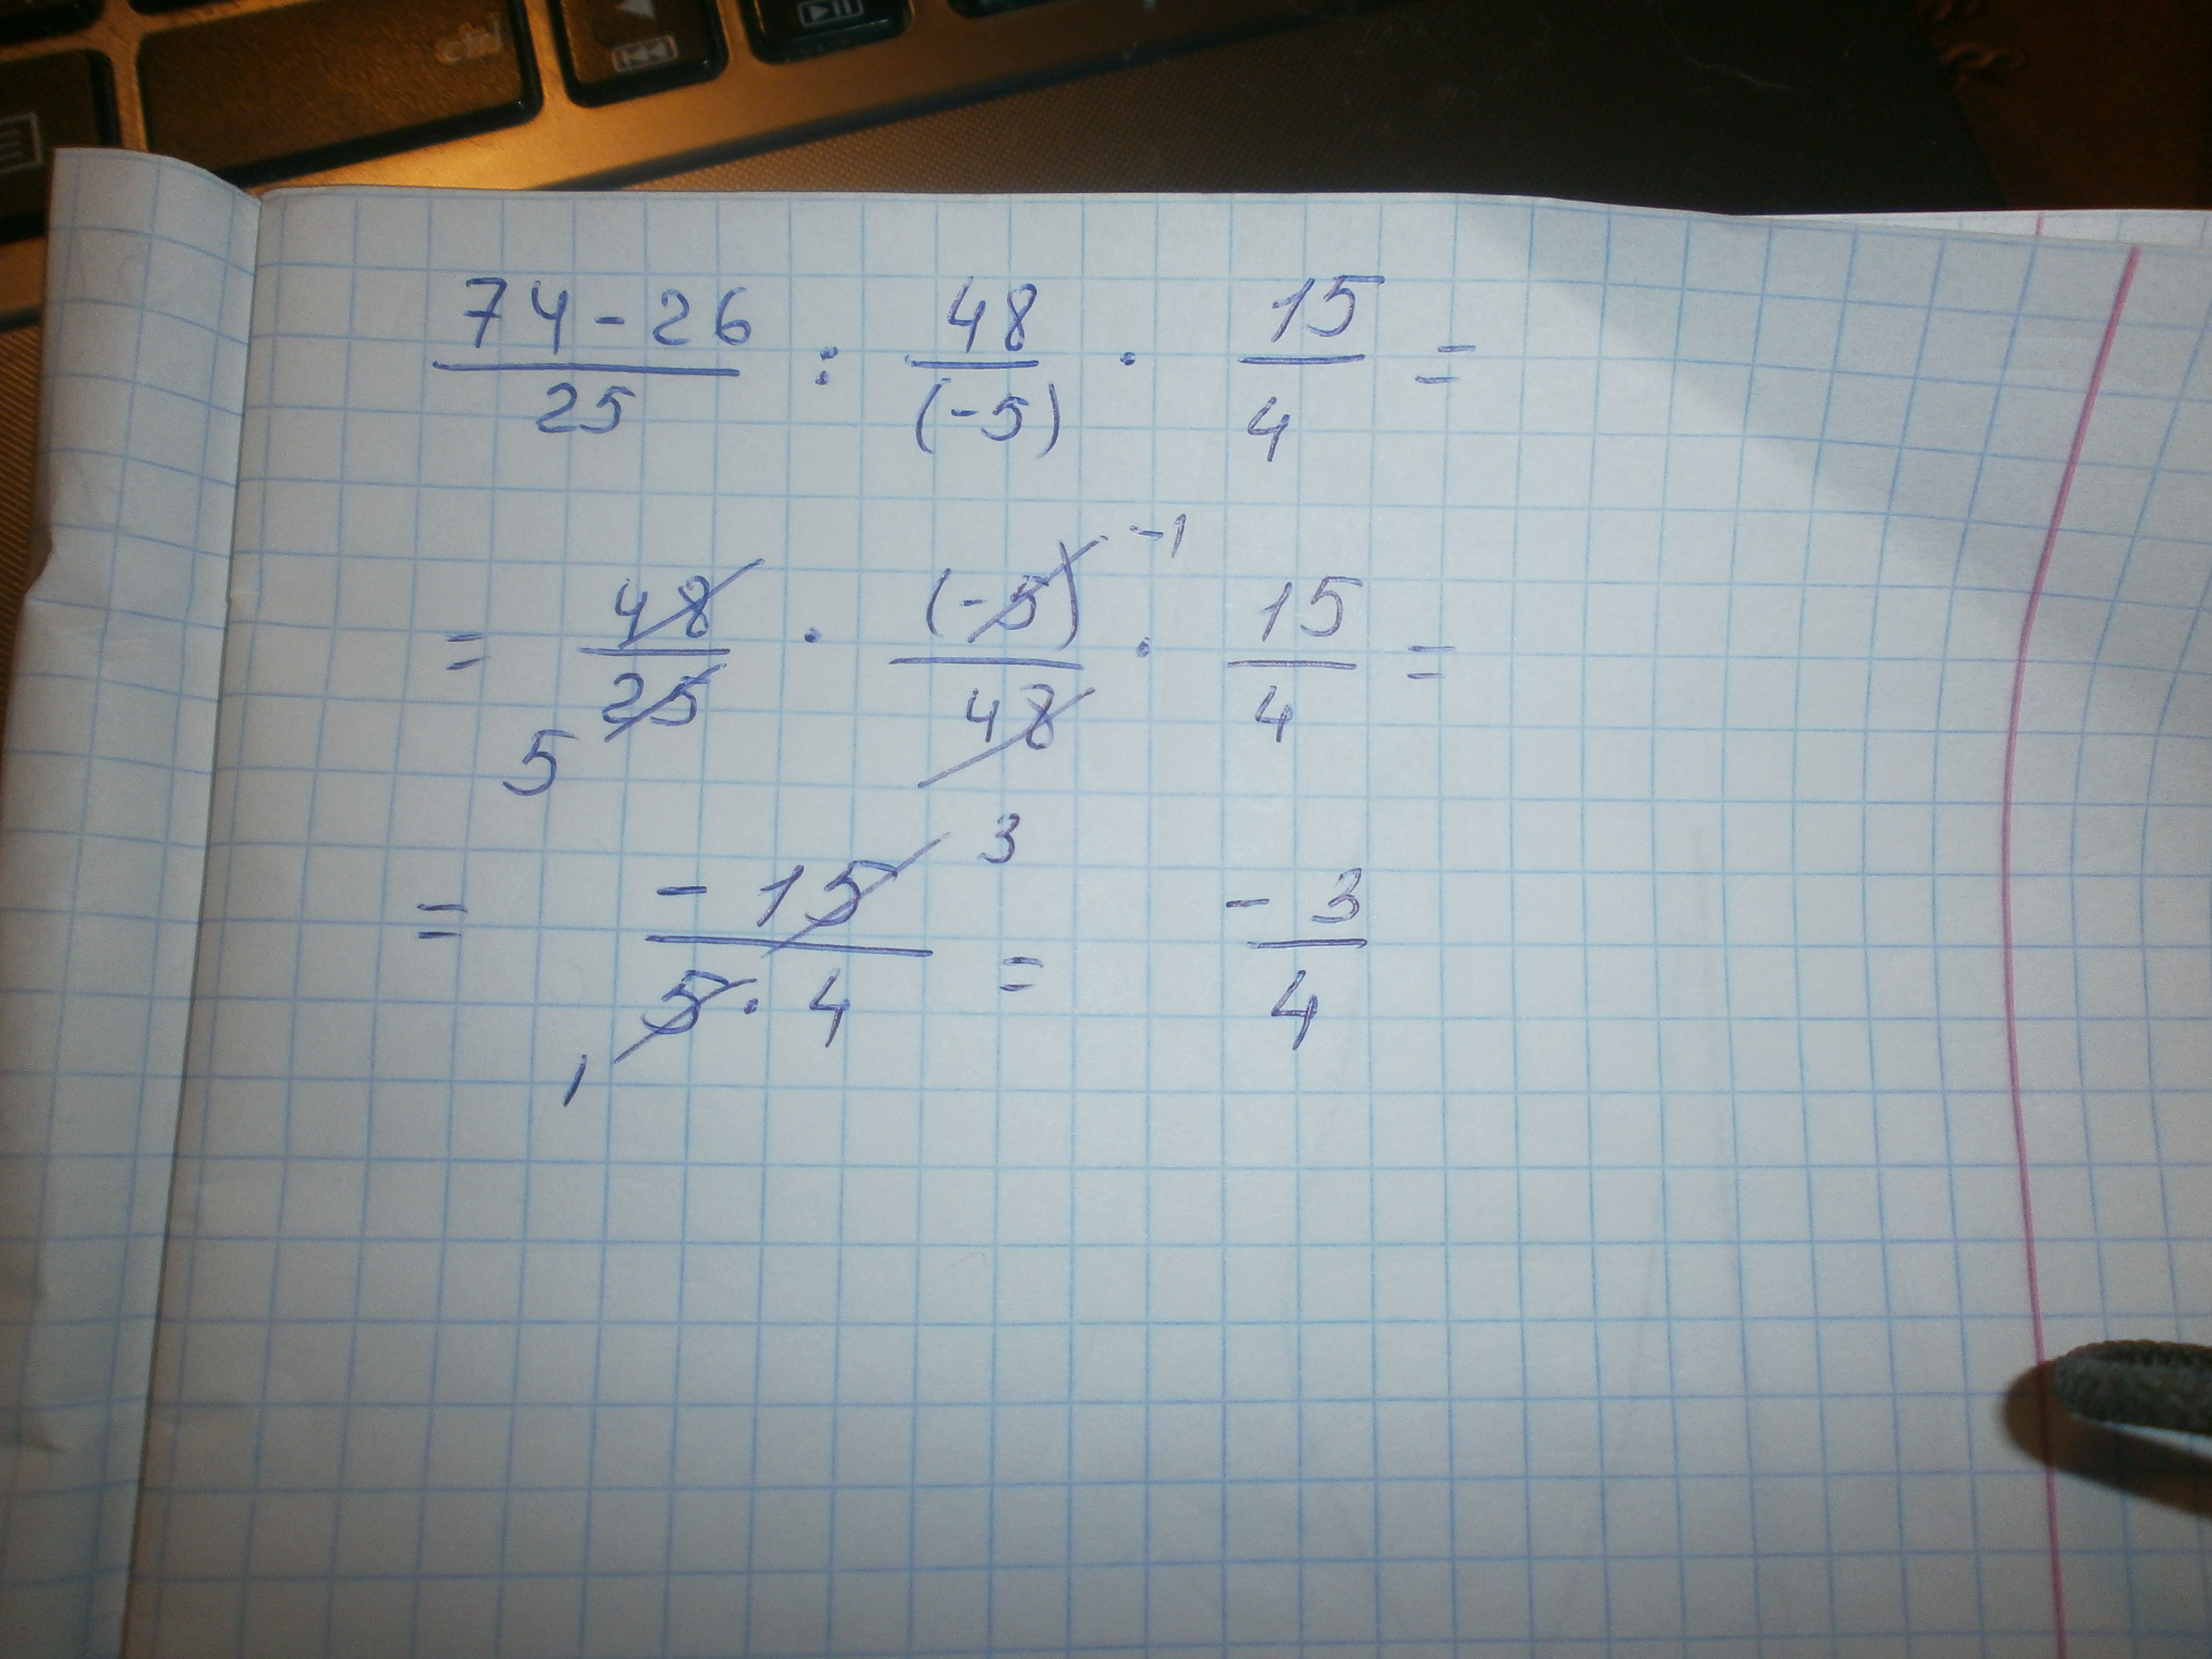 ctrl
74-26 / 25 : 48 / (-5) · 15 / 4 =
= 48 / 25 · (-5) / 48 · 15 / 4 =
-1
5
= -15 / 5·4 = -3 / 4
3
1